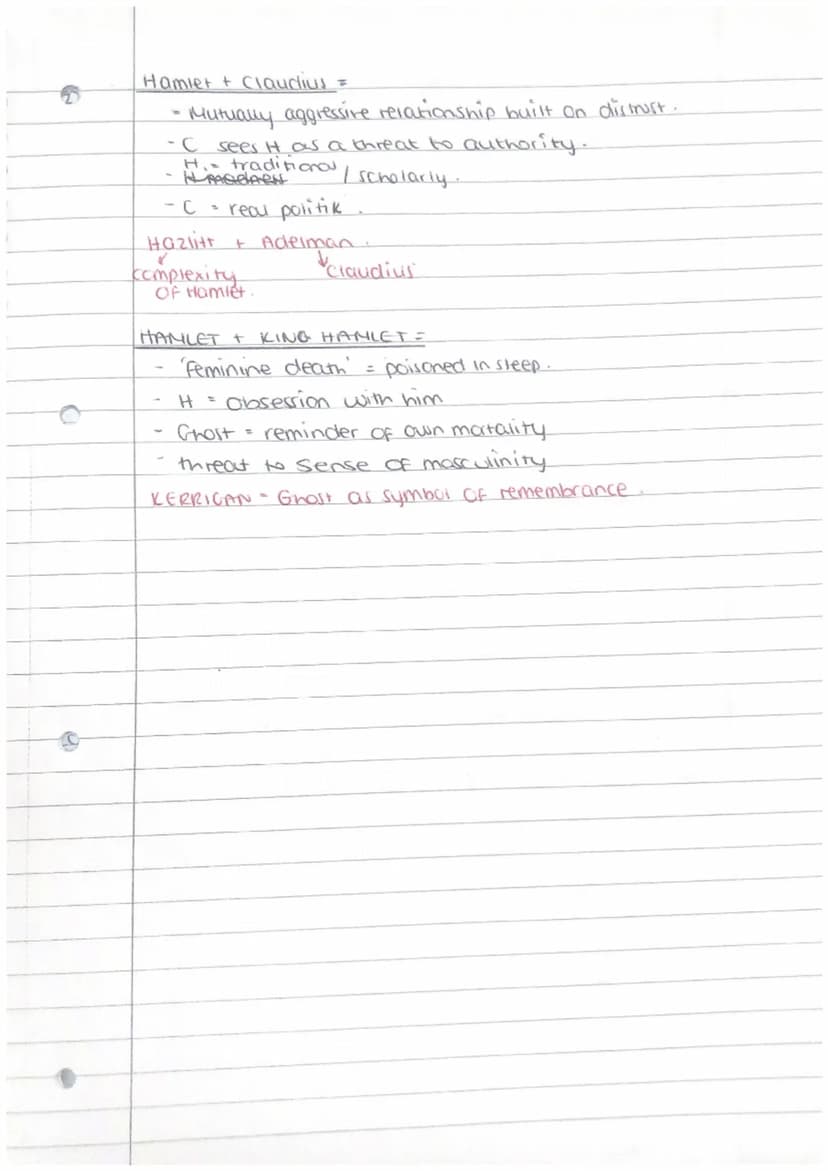 Hamlet + Claudius =
- Mutually aggressive relationship built on distrust.
- C sees H as a threat to authority.
H. = traditional
- H madness / scholarly.
- C = real politik.
Hazlitt + Adelman.
complexity Claudius
OF Hamlet.
HAMLET + KING HAMLET =
- 'feminine death' = poisoned in sleep.
- H = obsession with him
- Ghost = reminder of own mortality
- threat to sense of masculinity
KERRIGAN = Ghost as symbol of remembrance.